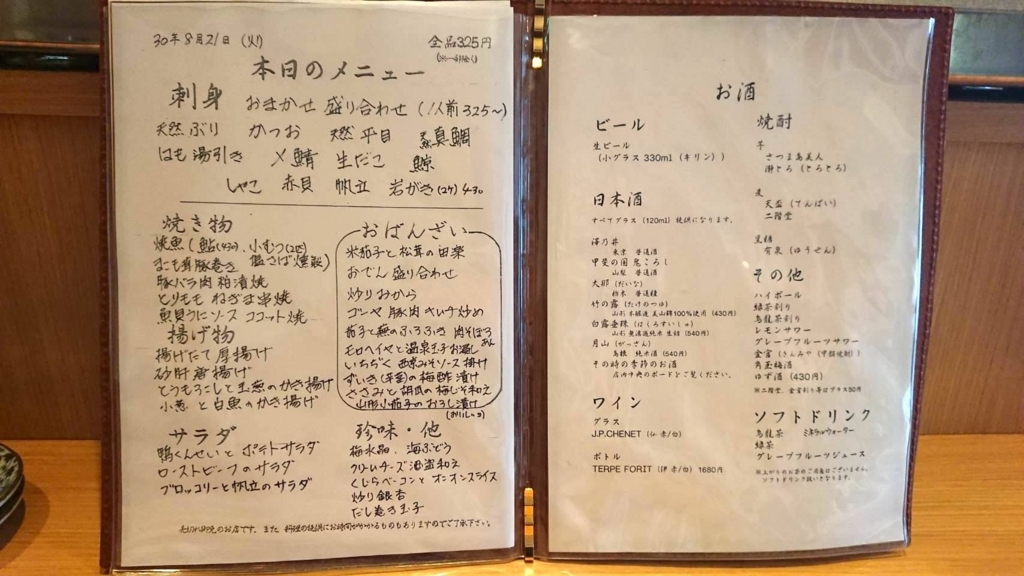 30年8月21日(火)
全品325円
本日のメニュー
刺身 おまかせ 盛り合わせ(1人前325〜)
天然ぶり かつお 天然 平目 真鯛
はも湯引き 〆鯖 生だこ 鯨
しゃこ 赤貝 帆立 岩がき(2ケ)430
焼き物
焼魚(鮎(430)、小むつ(2匹)
塩さば燻製)
まこも茸豚巻き
豚バラ肉 粕漬焼
とりモモ ねぎま串焼
魚貝うにソース ココット焼
揚げ物
揚げたて厚揚げ
砂肝唐揚げ
とうもろこしと玉葱のかき揚げ
小葱と白魚のかき揚げ
サラダ
鴨くんせいとポテトサラダ
ローストビーフのサラダ
ブロッコリーと帆立のサラダ
おばんざい
米茄子と松茸の田楽
おでん 盛り合わせ
炒りおから
ゴーヤ 豚肉 キムチ炒め
茄子と蕪のふろふき 肉そぼろあん
モロヘイヤと温泉玉子お浸し
いちぢく 西京みそソース掛け
ずいき(芋茎)の梅酢漬け
ささみと胡瓜の梅しそ和え
山形小茄子のおろし漬け
(おいしーっ)
珍味・他
梅水晶、海ぶどう
クリームチーズ酒盗和え
くじらベーコンとオニオンスライス
炒り銀杏
だし巻き玉子
売切れ御免のお店です。また 料理の提供にお時間がかかるものもありますのでご了承下さい。
お酒
ビール
生ビール
(小グラス 330ml (キリン))
日本酒
すべてグラス (120ml) 提供になります。
澤乃井
東京 普通酒
甲斐の国鬼ころし
山梨 普通酒
大那 (だいな)
栃木 普通種
竹の露 (たけのつゆ)
山形 本醸造 美山錦100%使用 (430円)
白露垂珠 (はくろすいしゅ)
山形 無濾過純米 生詰 (540円)
月山 (がーさん)
島根 純米酒 (540円)
その時の季節のお酒
店内中央のボードをご覧ください。
ワイン
グラス
J.P.CHENET (仏 赤/白)
ボトル
TERPE FORIT (伊 赤/白) 1680円
焼酎
芋
さつま島美人
瀞とろ (とろとろ)
麦
天盃 (てんぱい)
二階堂
黒糖
有泉 (ゆうせん)
その他
ハイボール
緑茶割り
烏龍茶割り
レモンサワー
グレープフルーツサワー
金宮 (きんみや (甲類焼酎))
角玉梅酒
ゆず酒 (430円)
※二階堂、金宮割り等はプラス50円
ソフトドリンク
烏龍茶 ミネラルウォーター
緑茶
グレープフルーツジュース
※上がりのお茶のご用意はございません。
ソフトドリンク扱いとなります。